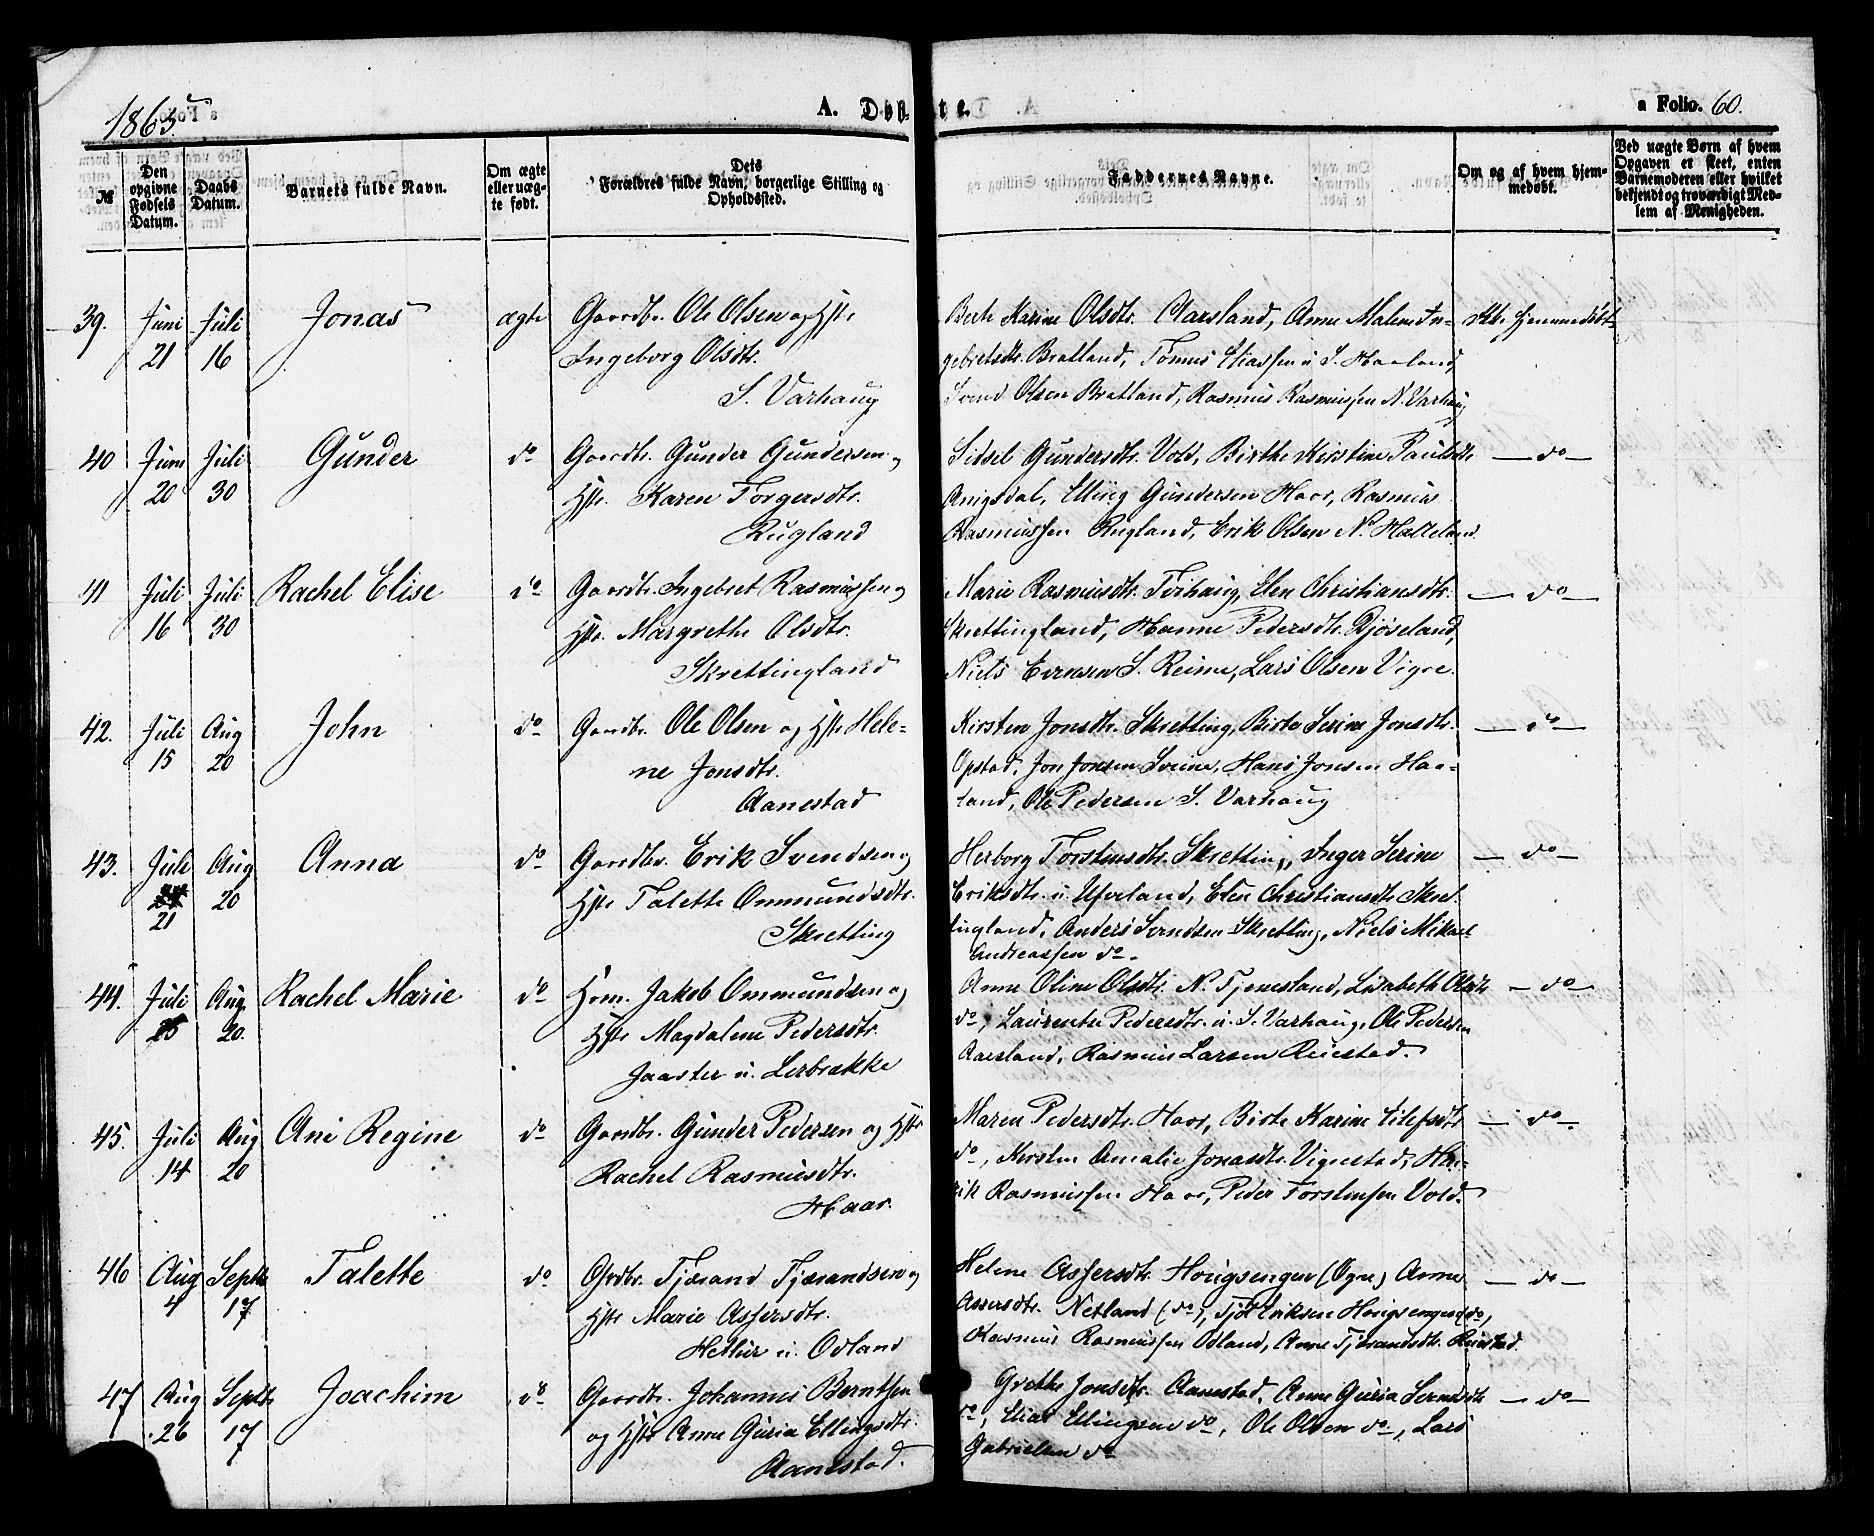 1865
A. Døbte.
a Folio. 60.
№
Den opgivne Fødsels Datum.
Daabs Datum.
Barnets fulde Navn.
Om ægte eller uægte født.
Dets Forældres fulde Navn, borgerlige Stilling og Opholdssted.
Faddernes Navne.
Om og af hvem hjemmedøbt.
Ved uægte Børn af hvem Opgaven er skeet, enten Barnemoderen eller hvilket bekjendt og troværdigt Medlem af Menigheden.
39. Juni 21 Juli 16 Jonas ægte
Gaardbr. Ole Olsen og Hstr
Ingeborg Olsdtr.
S. Varhaug
Berte Karine Olsdtr. Aarsland, Anne Malene In-
gebretsdtr. Bratland, Tønnes Eliassen u. S. Haaland,
Svend Olsen Bratland, Rasmus Rasmussen N. Varhaug
Ikke hjemmedøbt
40 Juni 20 Juli 30 Gunder do
Gaardbr. Gunder Gundersen og
Hstr. Karen Torgersdtr.
Rugland
Sidsel Gundersdtr. Vold, Birthe Kirstine Paulsdtr
Anigsdal, Elling Gundersen Haar, Rasmus
Rasmussen Rugland, Erik Olsen N. Hatteland.
— do —
41 Juli 16 Juli 30 Rachel Elise do
Gaardbr. Ingebret Rasmussen og
Hstr. Margrethe Olsdtr.
Skrettingland
Marie Rasmusdtr. Torhaug, Elen Christiansdtr.
Skrettingland, Hanne Pedersdtr. Djøseland,
Niels Evensen S. Reime, Lars Olsen Vigre.
— do —
42. Juli 15 Aug 20 John do
Gaardbr. Ole Olsen og Hstr Hele-
ne Jonsdtr.
Aanestad
Kirsten Jonsdtr. Skretting, Birte Serine Jonsdtr.
Opstad, Jon Jonsen Sveine, Hans Jonsen Haa-
land, Ole Pedersen S. Varhaug
— do —
43. Juli 21 Aug 20 Anna do
Gaardbr. Erik Svendsen og
Hstr Talette Ommundsdtr.
Skretting
Herborg Torstensdtr. Skretting, Inger Serine
Eriksdtr. u. Ueland, Elen Christiansdtr Skret-
tingland, Anders Svendsen Skretting, Niels Mikael
Andreassen do.
— do —
44. Juli 25 Aug. 20. Rachel Marie do
Hrm. Jakob Ommundsen og
Hstr Magdalene Pedersdtr.
Jaaster u. Lerbrække
Anne Oline Olsdtr. N. Tjemsland, Lisabeth Olsdtr
do, Laurentse Pedersdtr. u. S. Varhaug, Ole Pedersen
Aarsland, Rasmus Larsen Reiestad.
— do —
45. Juli 14 Aug 20 Ane Regine do
Gaardbr. Gunder Pedersen og Hstr
Rachel Rasmusdtr.
Haar.
Maren Pedersdtr. Haar, Birte Karine Eilefsdtr
do, Kirsten Amalie Jonasdtr. Vigrestad, Hen-
rik Rasmussen Haar, Peder Torstensen Vold.
— do —
46 Aug 4 Septbr 17 Talette do
Grdbr. Tjærand Tjærandsen og
Hstr Marie Assersdtr.
Hetlur u. Odland
Helene Assersdtr. Hougsengen (Ogne) Anne
Assersdtr. Netland (do), Tjøl Eriksen Hougsengen (do,
Rasmus Rasmussen Odland, Anne Tjærandsdtr. Reiestad.
— do —
47 Aug 26 Septbr 17 Joachim do
Gaardbr. Johannes Berntsen
og Hstr Anne Guria Ellingsdtr.
Aanestad.
Grethe Jonsdtr. Aanestad, Anne Guria Svendsdtr
do, Elias Ellingsen do, Ole Olsen do, Lars
Gabrielsen do
— do —